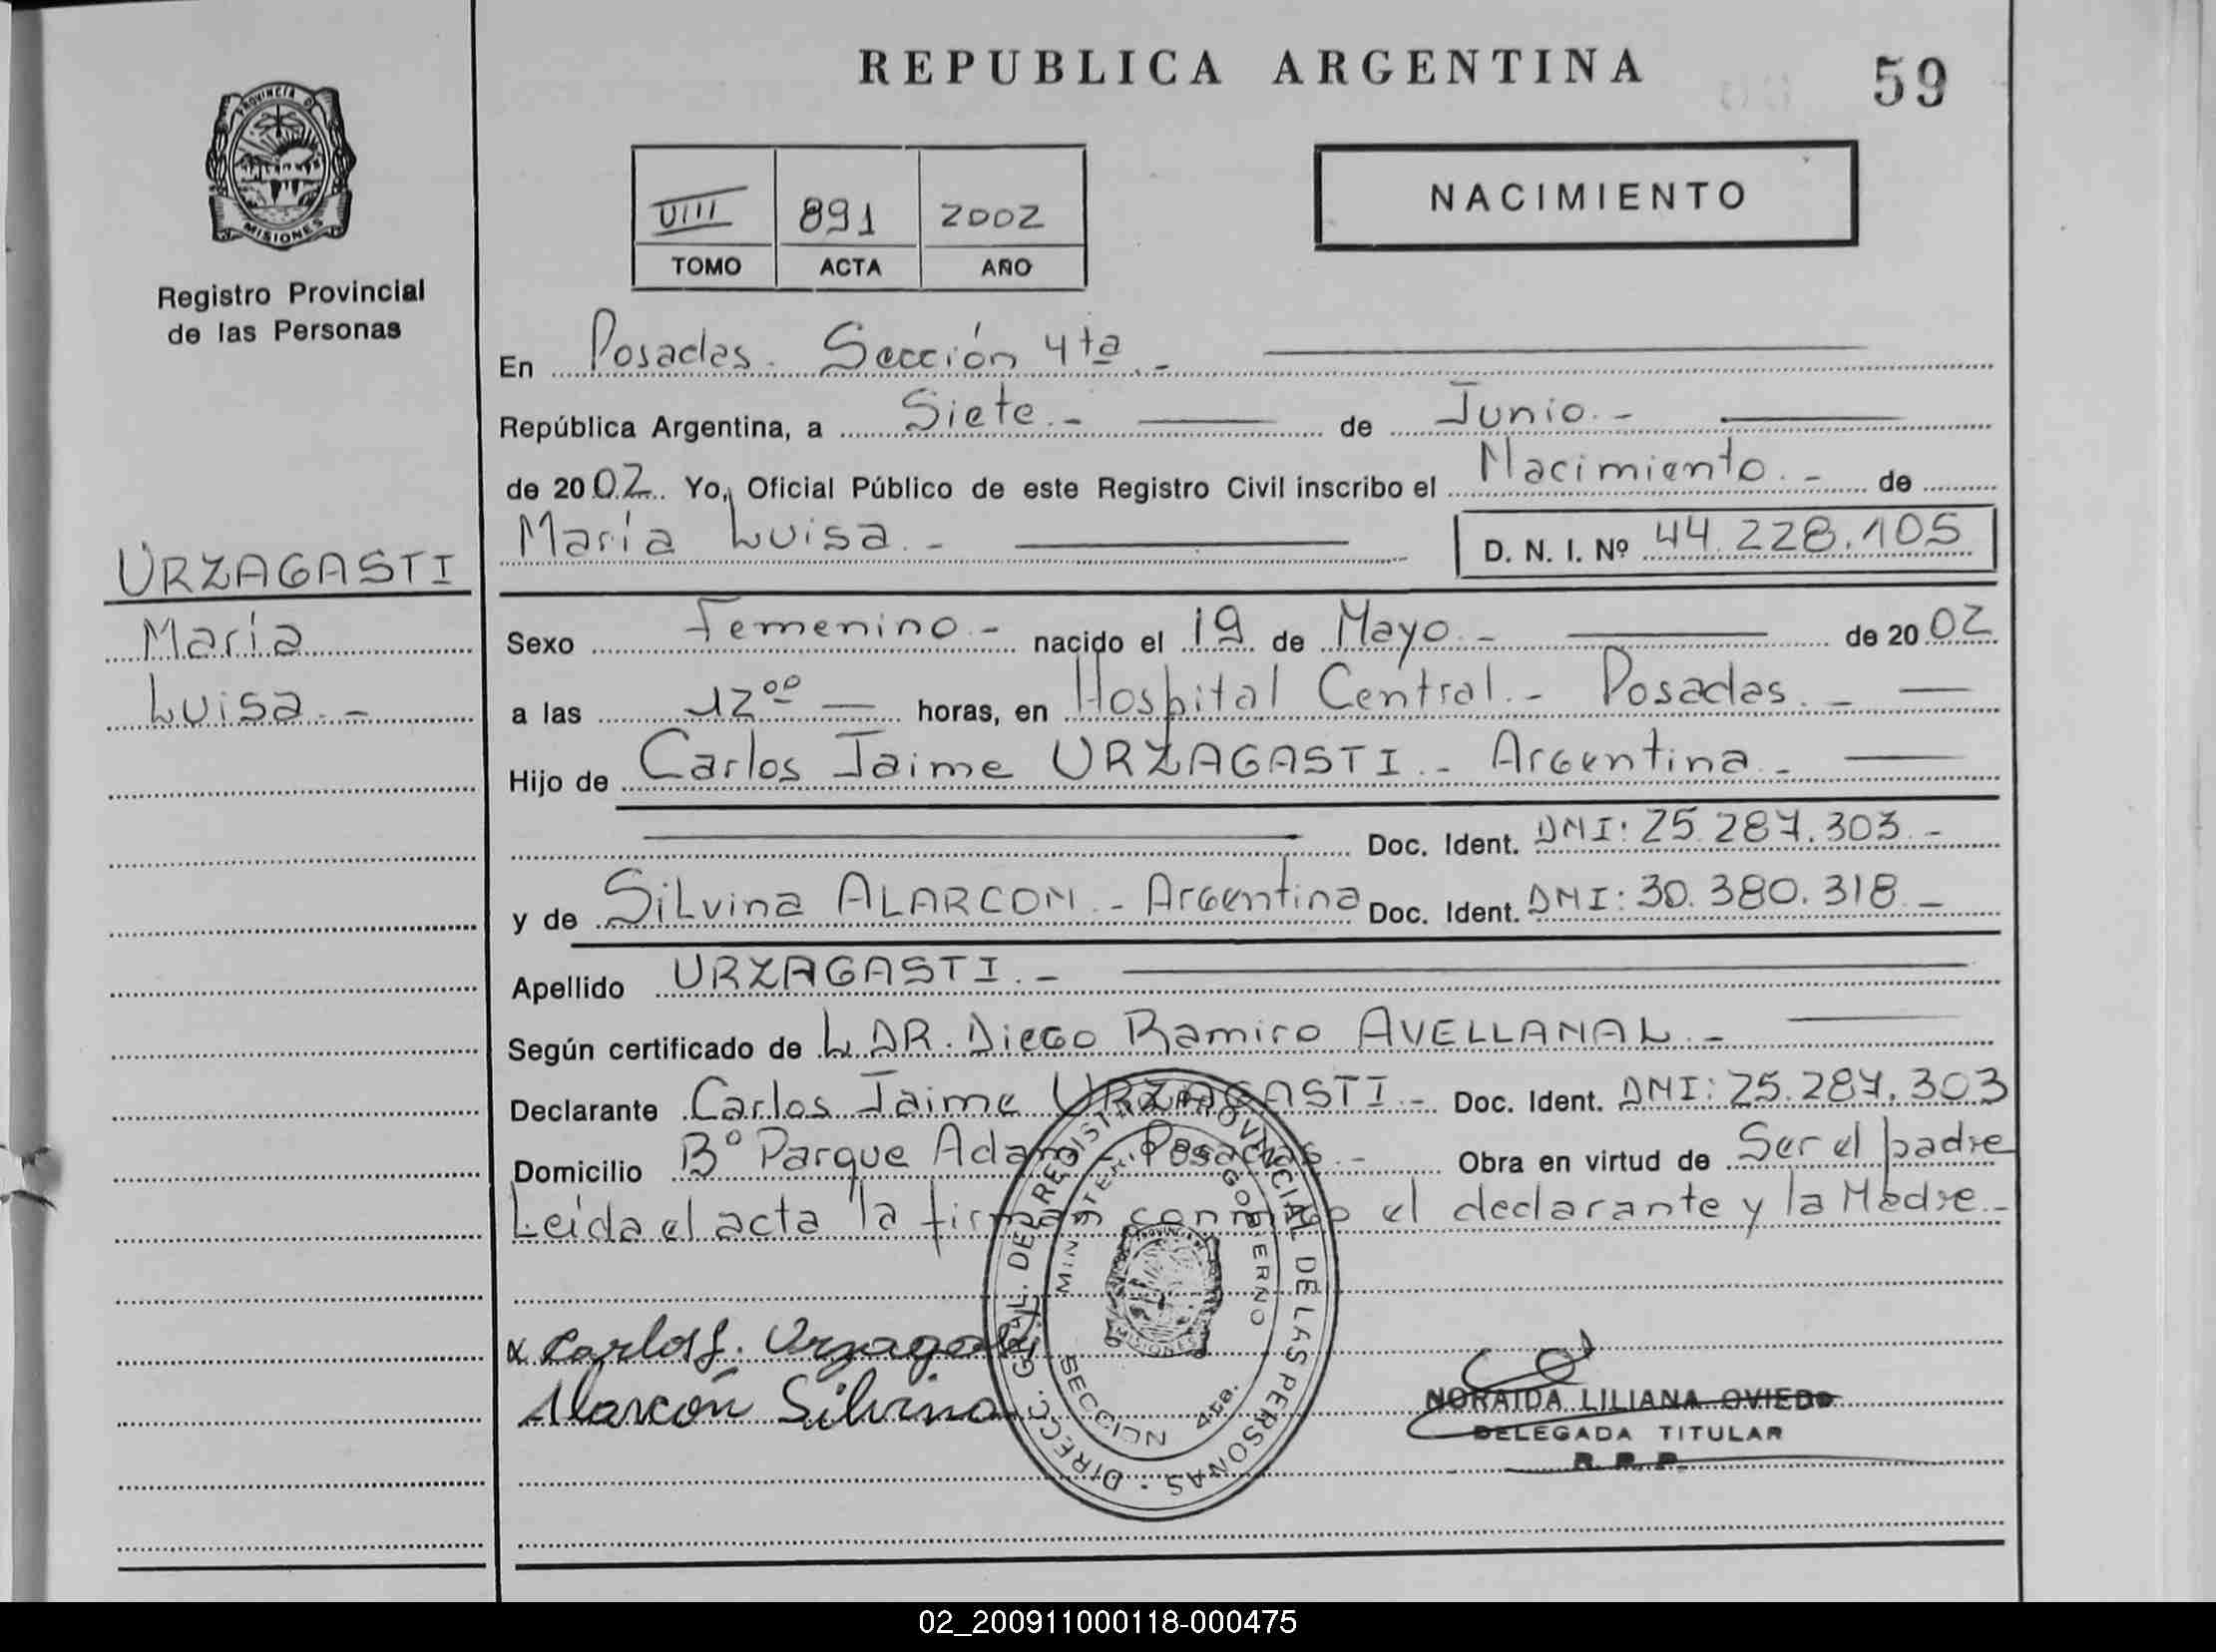 REPUBLICA ARGENTINA
59
PROVINCIA DE
MISIONES
Registro Provincial
de las Personas
VIII 891 2002
TOMO ACTA AÑO
NACIMIENTO
En Posadas. Sección 4ta.-
República Argentina, a Siete.- de Junio.-
de 2002. Yo, Oficial Público de este Registro Civil inscribo el Nacimiento.- de
María Luisa.-
D. N. I. Nº 44.228.105
URZAGASTI
María
Luisa.-
Sexo Femenino.- nacido el 19 de Mayo.- de 2002
a las 12⁰⁰ horas, en Hospital Central.- Posadas.-
Hijo de Carlos Jaime URZAGASTI.- Argentina.-
Doc. Ident. DNI: 25.287.303.-
y de Silvina ALARCON.- Argentina Doc. Ident. DNI: 30.380.318.-
Apellido URZAGASTI.-
Según certificado de L DR. Diego Ramiro AVELLANAL.-
Declarante Carlos Jaime URZAGASTI.- Doc. Ident. DNI: 25.287.303
Domicilio Bº Parque Adam - Posadas.- Obra en virtud de Ser el padre
Leida el acta la firman conmigo el declarante y la Madre.-
x Carlos J. Urzagasti
Alarcón Silvina
DIRECC. GRAL. DEL REGISTRO PROVINCIAL DE LAS PERSONAS
MINISTERIO DE GOBIERNO
SECCION 4ta.
NORAIDA LILIANA OVIEDO
DELEGADA TITULAR
R. P. P.
02_200911000118-000475